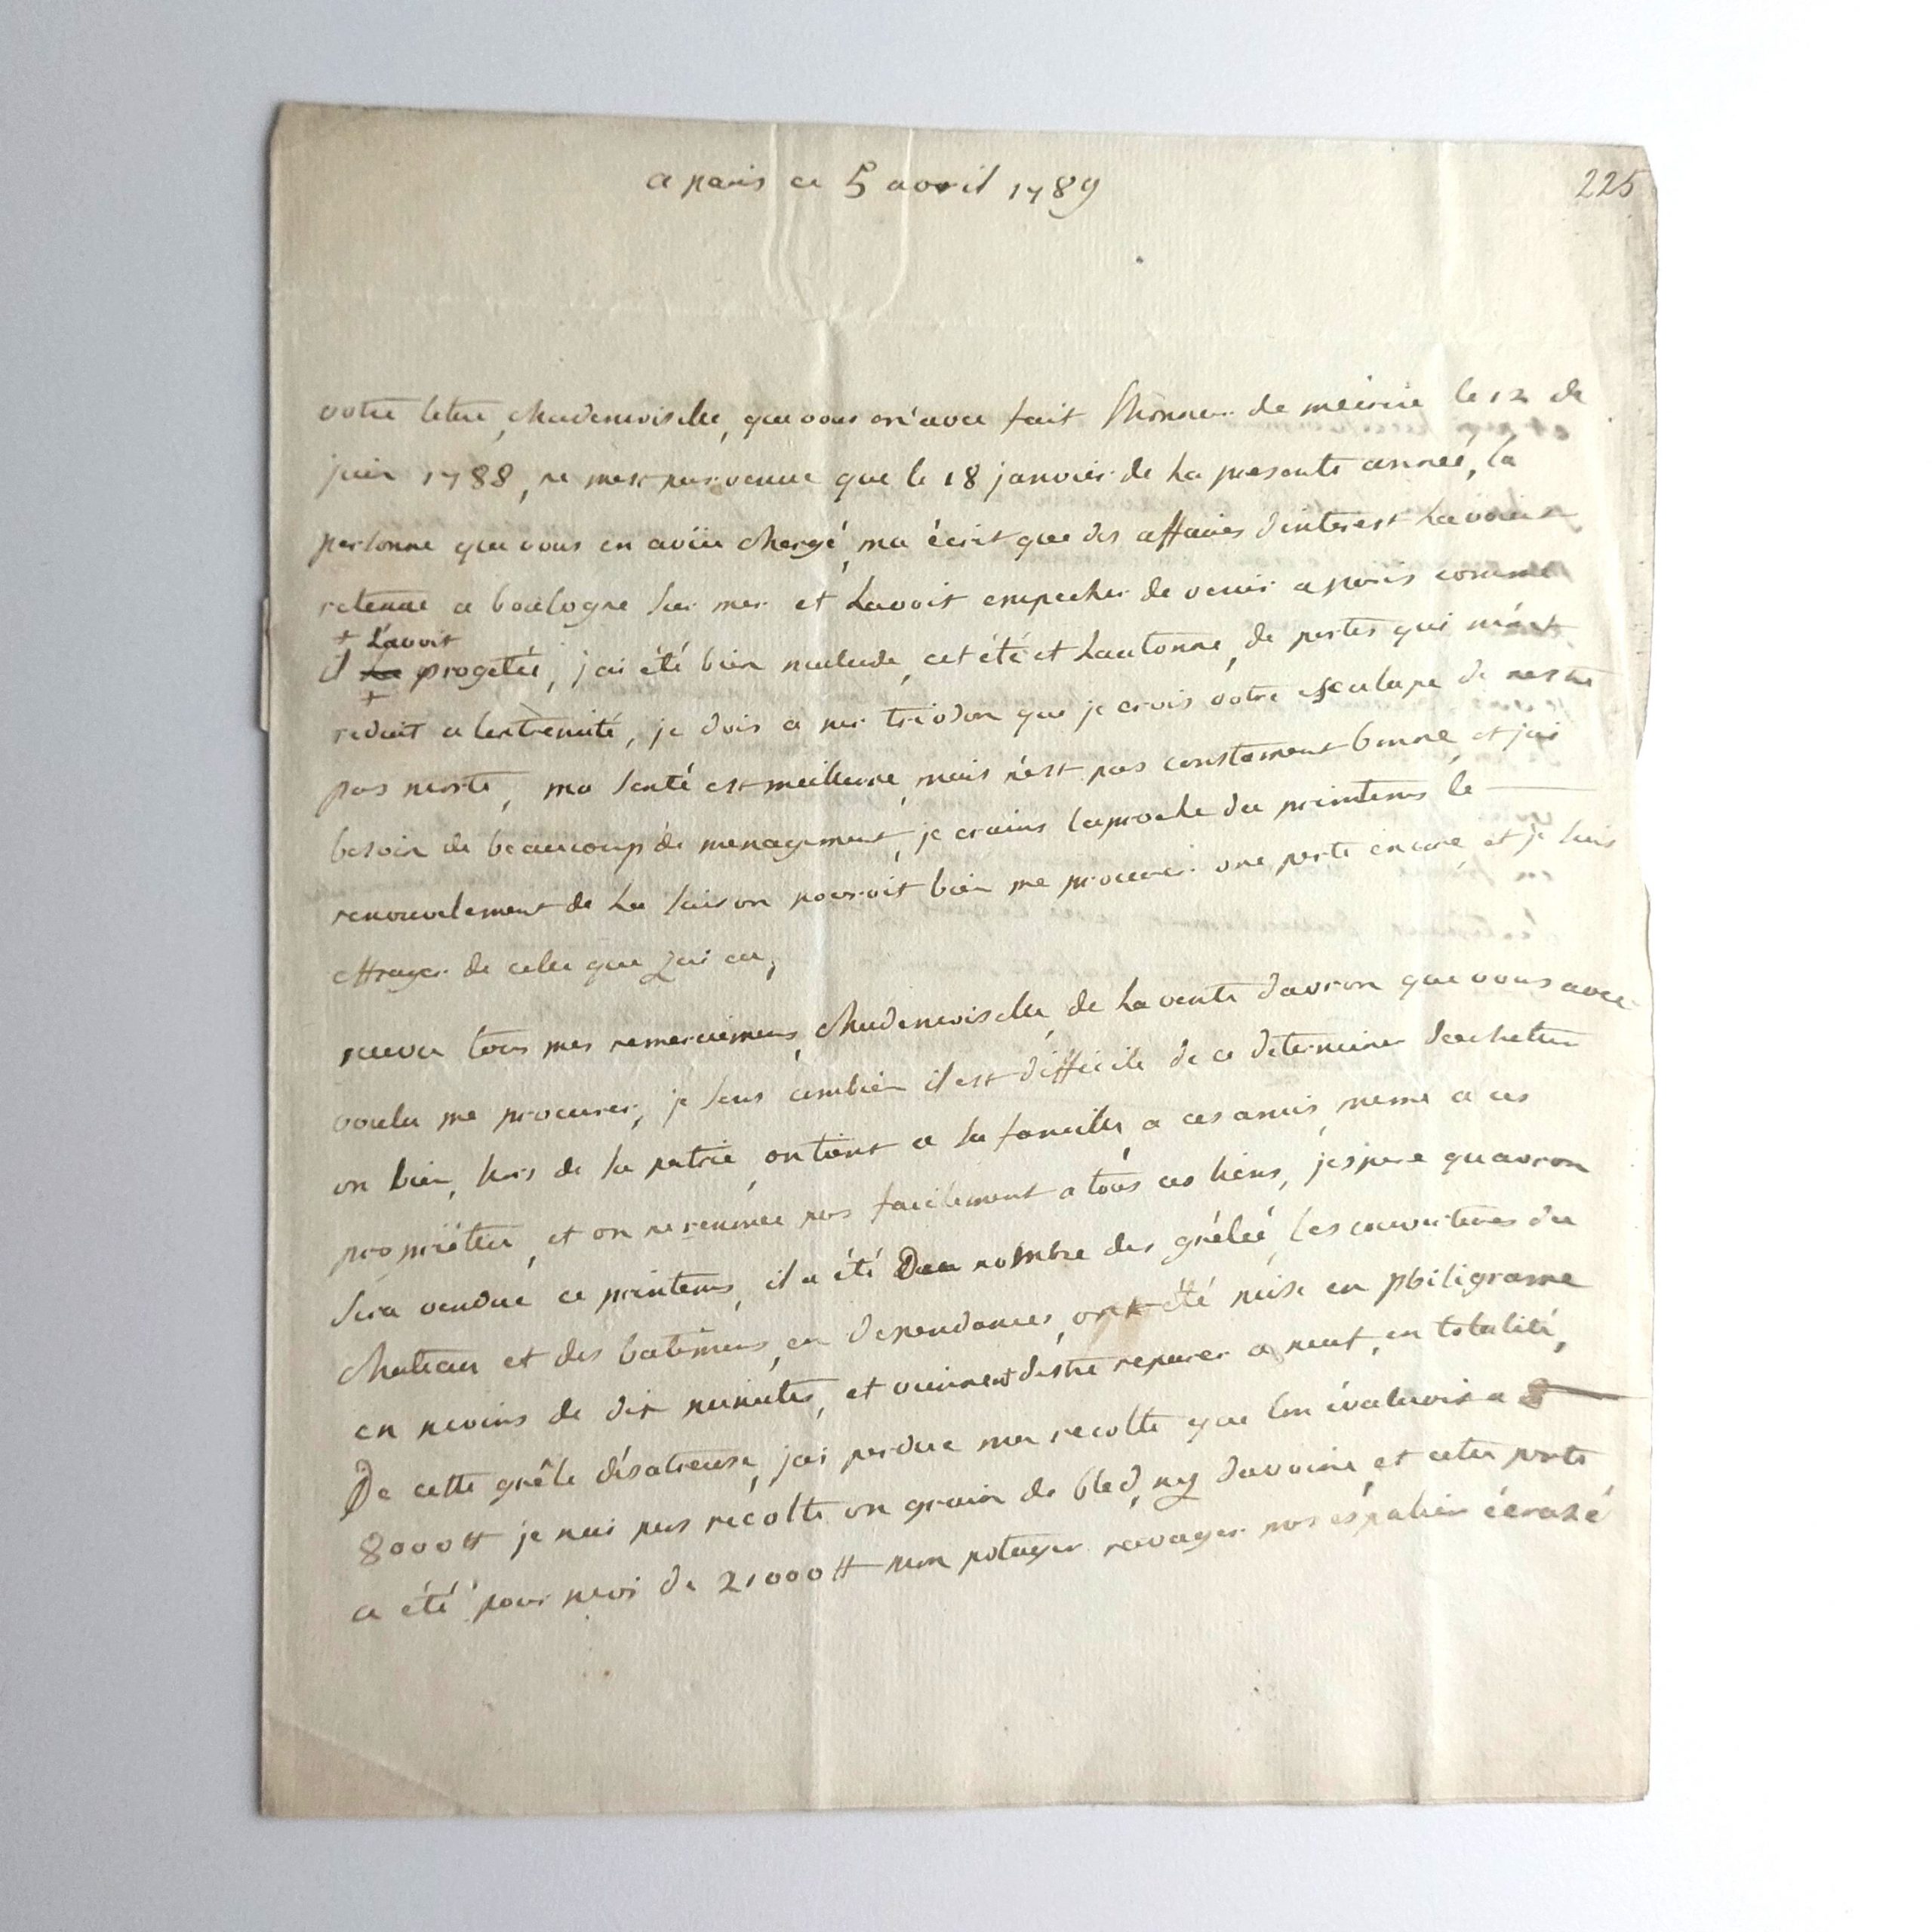 a paris ce 5 avril 1789
225
votre letre, Mademoiselle, que vous m'avez fait lhonneur de mécrire le 12 de
juin 1788, ne mest parvenue que le 18 janvier de la presente année, la
personne que vous en aviez chargé, ma écrit que des affaires dinterest lavoient
retenue a boulogne sur mer et lavoit empecher de venir a paris comme
+ L'avoit
il progetée, j'ai été bien malade, cet été et lautonne, de pertes qui m'ont
+
reduit a lextrémité, je dois a mr triodon que je crois votre esculape de nestre
pas morte, ma santé est meilleure, mais n'est pas constament bonne, et j'ai
besoin de beaucoup de menagement, je crains laproche du printems le
renouvelement de la saison pouroit bien me procurer une perte encore, et je suis
effrayer de celle que j'ai eu,
recevez tous mes remerciemens, Mademoiselle, de la vente davron que vous avez
voulu me procurer, je sens combien il est difficile de ce determiner dachetter
un bien, hors de sa patrie, on tient a sa famille, a ces amis, meme a ces
propriétée, et on ne renonce pas facilement a tous ces liens, j'espere quavron
sera vendue ce printems, il a été Du nombre des grélée, les couvertures du
chateau et des batimens, en dependances, ont été mise en philigrame
en moins de dix minutes, et viennent destre reparer a neuf, en totalité,
De cette grêle désatreuse, j'ai perdue ma recolte que lon évaluoit a
8000 ₶ je nai pas récolté un grain de bled, ny davoine, et cette perte
a été pour moi de 21000 ₶ mon potager ravager mes éspalier écrasé